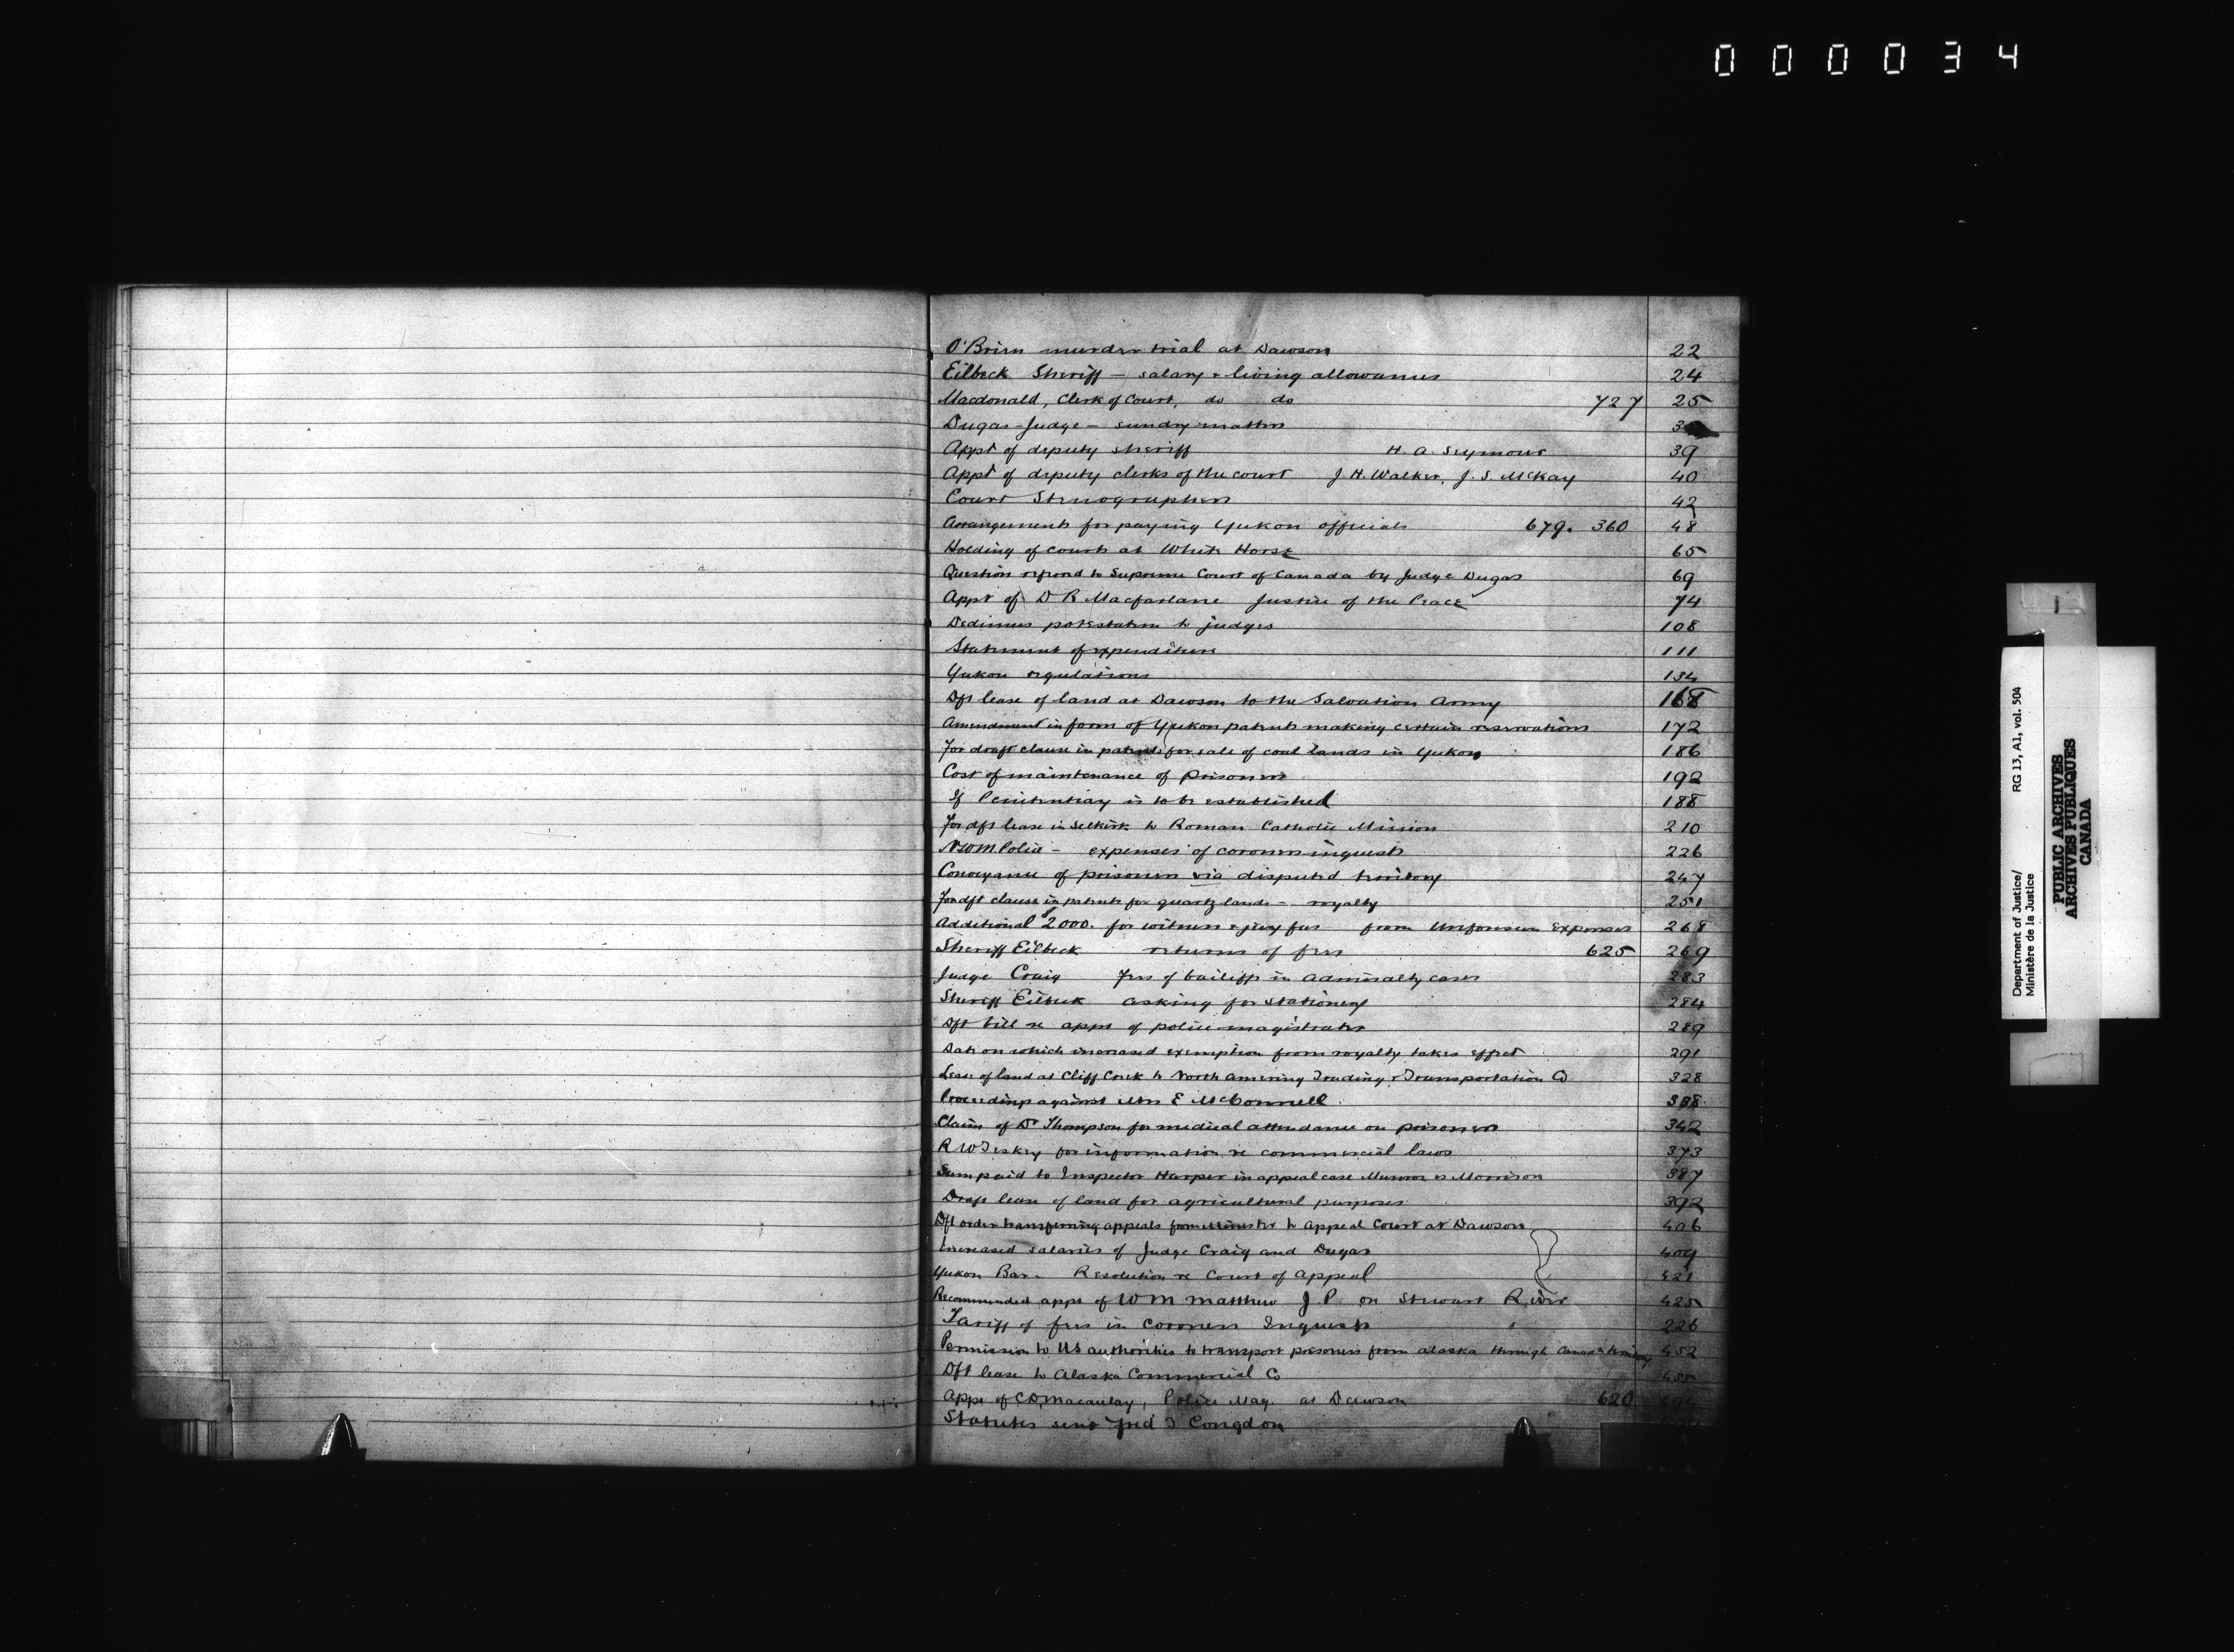 000034
O'Brien murder trial at Dawson 22
Eilbeck Sheriff — salary & living allowances 24
Macdonald, Clerk of Court, do do 727 25
Dugas Judge — sundry matters 3
Appt of deputy sheriff H. A. Seymour 39
Appt of deputy clerks of the court J. H. Walker, J. S. McKay 40
Court Stenographers 42
Arrangements for paying Yukon officials 679. 360 48
Holding of courts at White Horse 65
Question referred to Supreme Court of Canada by Judge Dugas 69
Appt of D R Macfarlane Justice of the Peace 74
Dedimus potestatem to judges 108
Statement of expenditure 111
Yukon regulations 134
Dft lease of land at Dawson to the Salvation Army 168
Amendment in form of Yukon patents making certain reservations 172
For draft clause in patents for sale of coal lands in Yukon 186
Cost of maintenance of prisoners 192
If Penitentiary is to be established 188
For dft lease in Selkirk to Roman Catholic Mission 210
NWM Police — expenses of coroners inquests 226
Conveyance of prisoners via disputed territory 247
For dft clause in patents for quartz lands — royalty 251
Additional $2000. for witness & jury fees from Unforeseen Expenses 268
Sheriff Eilbeck returns of fees 625 269
Judge Craig Fees of bailiffs in Admiralty cases 283
Sheriff Eilbeck asking for stationery 284
Dft bill re appt of police magistrates 289
Date on which increased exemption from royalty takes effect 291
Lease of land at Cliff Creek to North American Trading & Transportation Co 328
Proceedings against Mrs E McConnell 338
Claim of Dr Thompson for medical attendance on prisoners 342
R W for information re commercial laws 373
Sum paid to Inspector Harper in appeal case Munroe vs Morrison 387
Draft lease of land for agricultural purposes 392
Dft order transferring appeals from Minister to Appeal Court at Dawson 406
Increased salaries of Judge Craig and Dugas 409
Yukon Bar — Resolution re Court of Appeal 421
Recommended appt of Wm Matthew J.P. on Stewart River 425
Tariff of fees in Coroners Inquests 226
Permission to US authorities to transport prisoners from Alaska through Canadn territory 452
Dft lease to Alaska Commercial Co
Appt of C D Macaulay, Police Mag. at Dawson 620
Statutes sent Fred T Congdon
Department of Justice/ RG 13, A1, vol. 504
Ministère de la Justice
PUBLIC ARCHIVES
ARCHIVES PUBLIQUES
CANADA